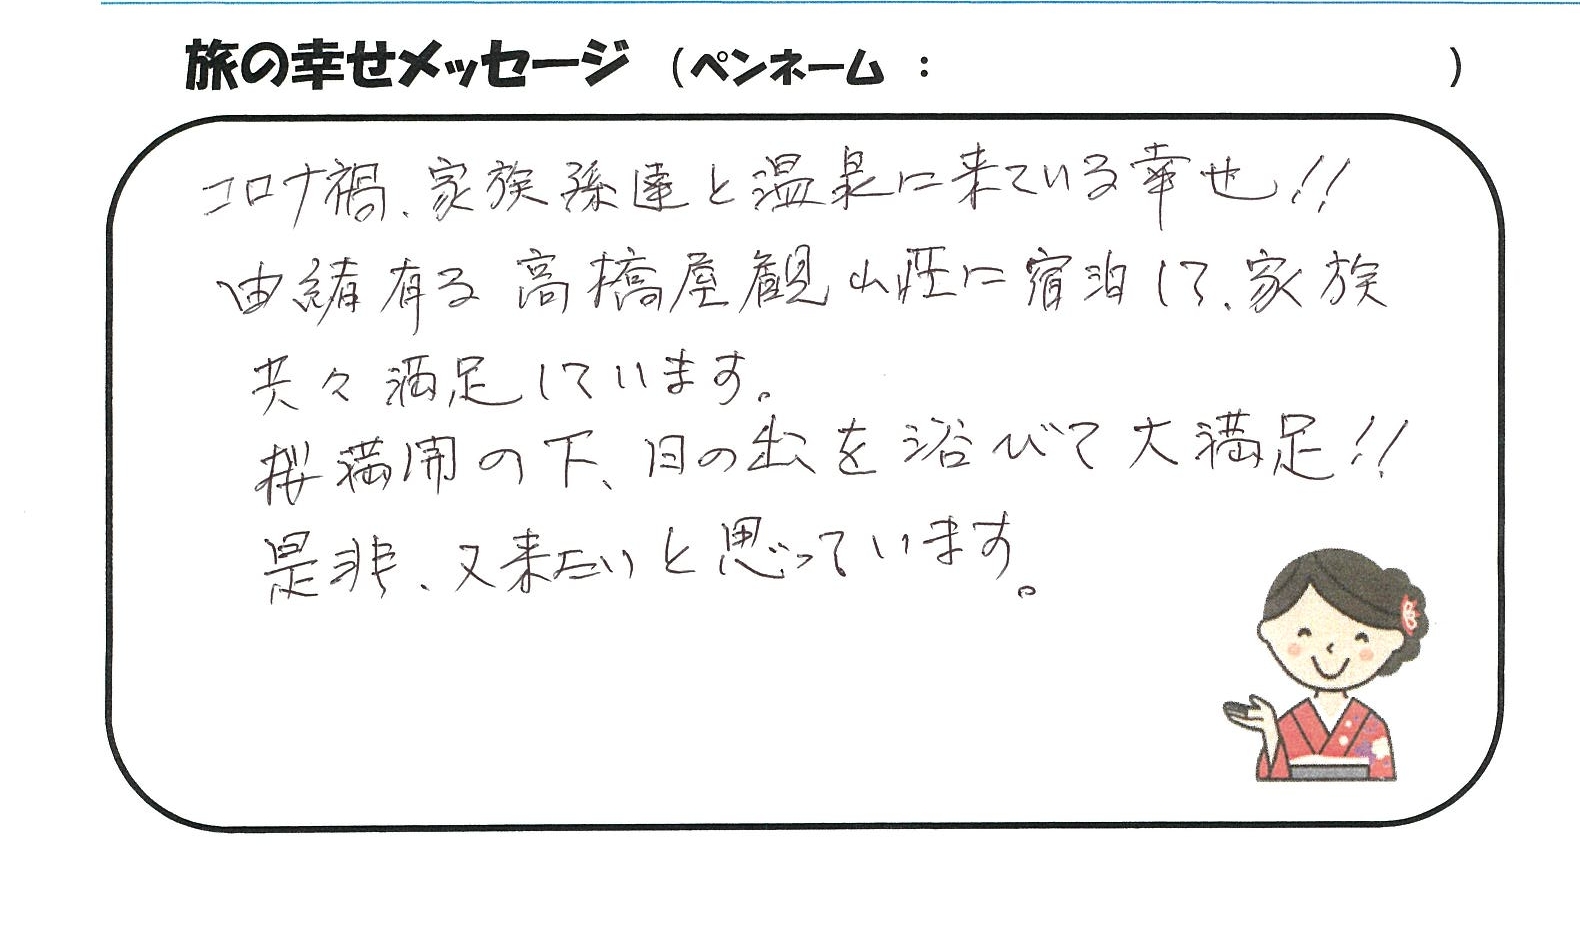 旅の幸せメッセージ （ペンネーム ： ）
コロナ禍、家族孫達と温泉に来ている幸せ!!
由緒有る高橋屋観山荘に宿泊して、家族
共々満足しています。
桜満開の下、日の出を浴びて大満足!!
是非、又来たいと思っています。